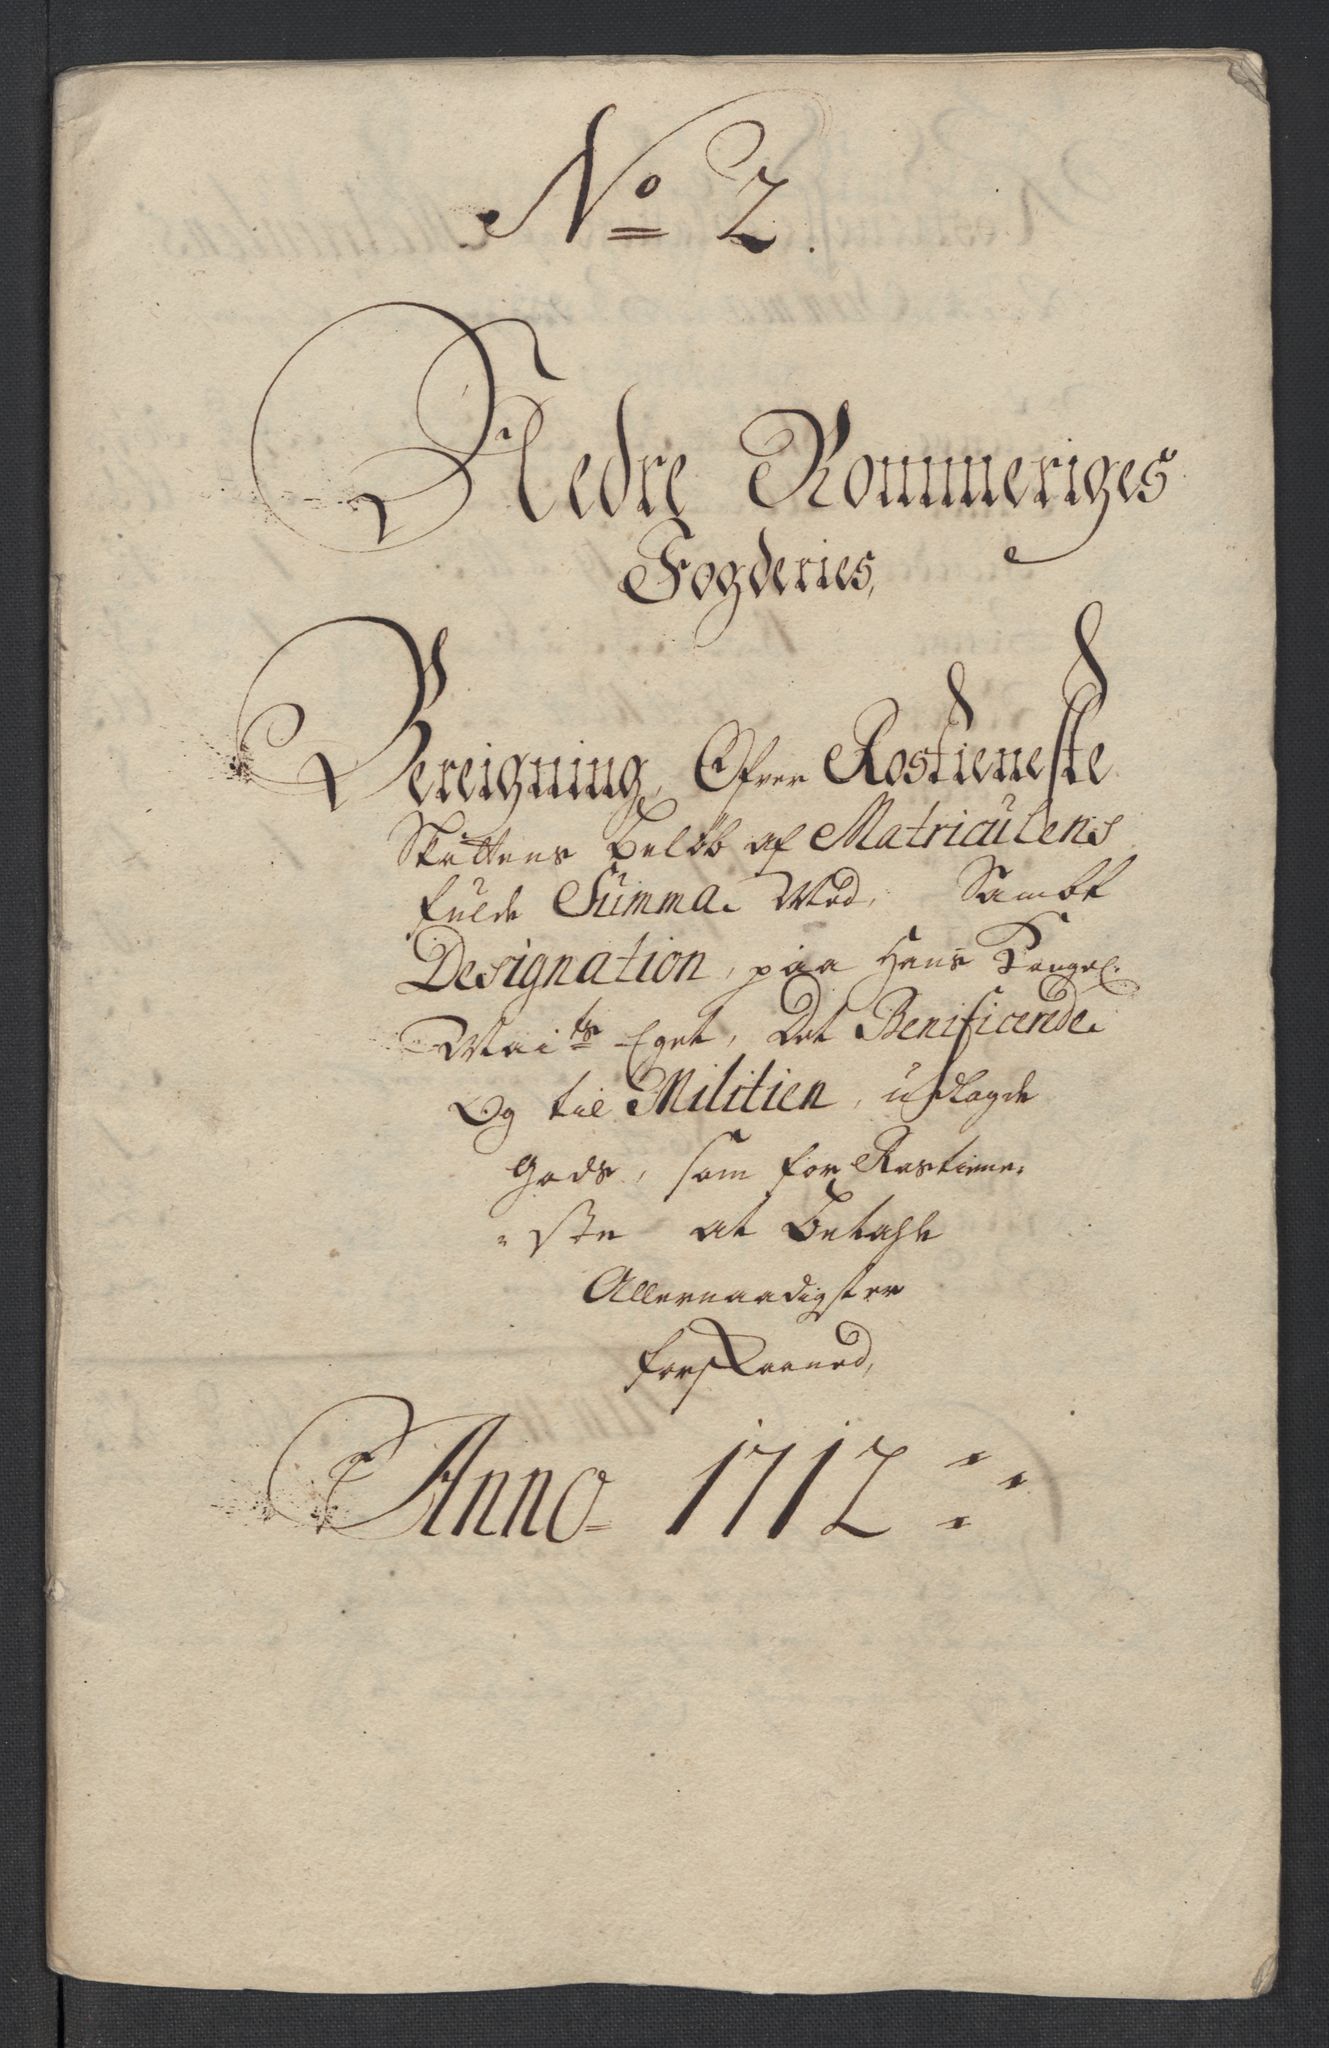 No 2.
Nedre Rommeriges
Fogderies,
Bereigning, Ofver Rostieneste
Skattens beløb af Matriculens
fulde Summa. Med, Sambt
Designation, paa Hans Kongel:
Maits Eget, Det Benificerede.
Og til Militien, udlagde
Gods, som for Rostiene-
-ste at betahle
Allernaadigst er
forskaaned,
Anno 1712